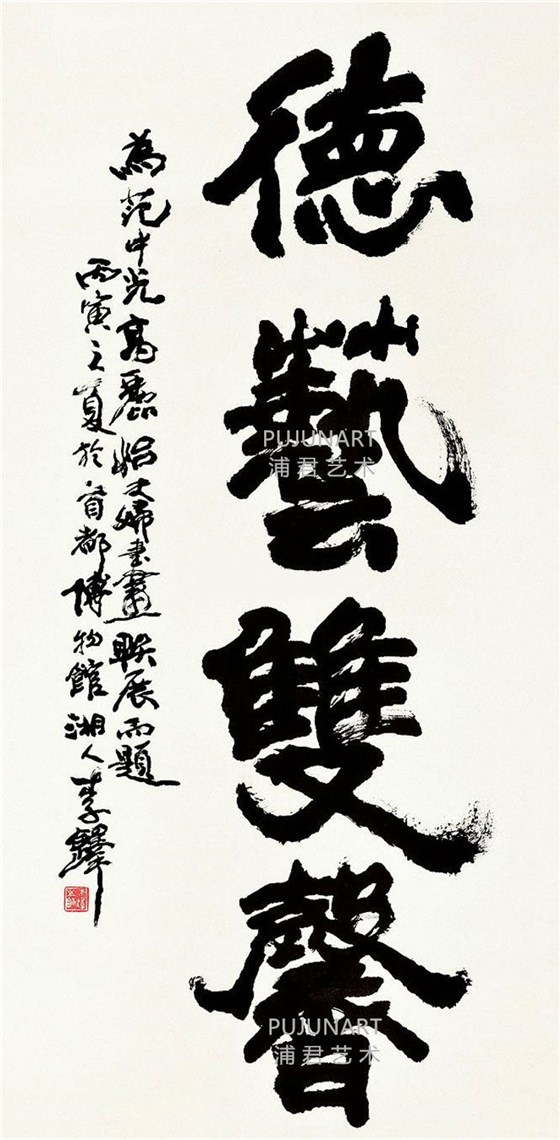 德藝雙馨
為范中光高麗娟夫婦書畫联展而題
丙寅之夏於首都博物館湘人李鐸
PUJUNART
浦君艺术
PUJUNART
浦君艺术